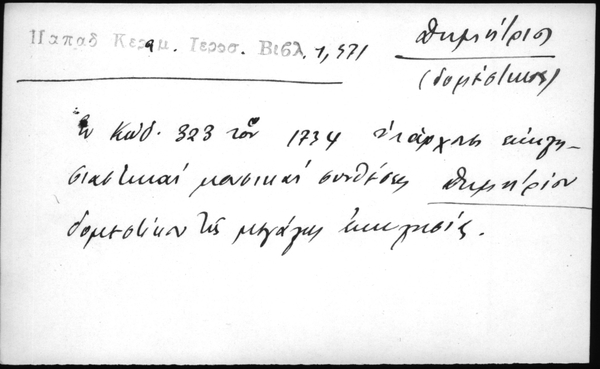 Παπαδ Κεραμ. Ιεροσ. Βιβλ. 1, 371
Δημήτριος
(δομέστικος)
Ἐν Κώδ. 323 τοῦ 1734 ὑπάρχει ἐκκλη-
σιαστικαί μουσικαί συνθέσεις Δημητρίου
δομεστίκου τῆς μεγάλης ἐκκλησίας.